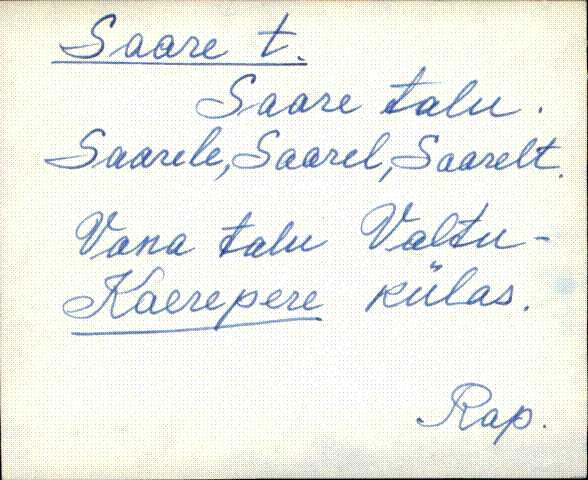 Saare t.
Saare talu.
Saarele, Saarel, Saarelt.
Vana talu Valtu-
Kaerepere külas.
Rap.